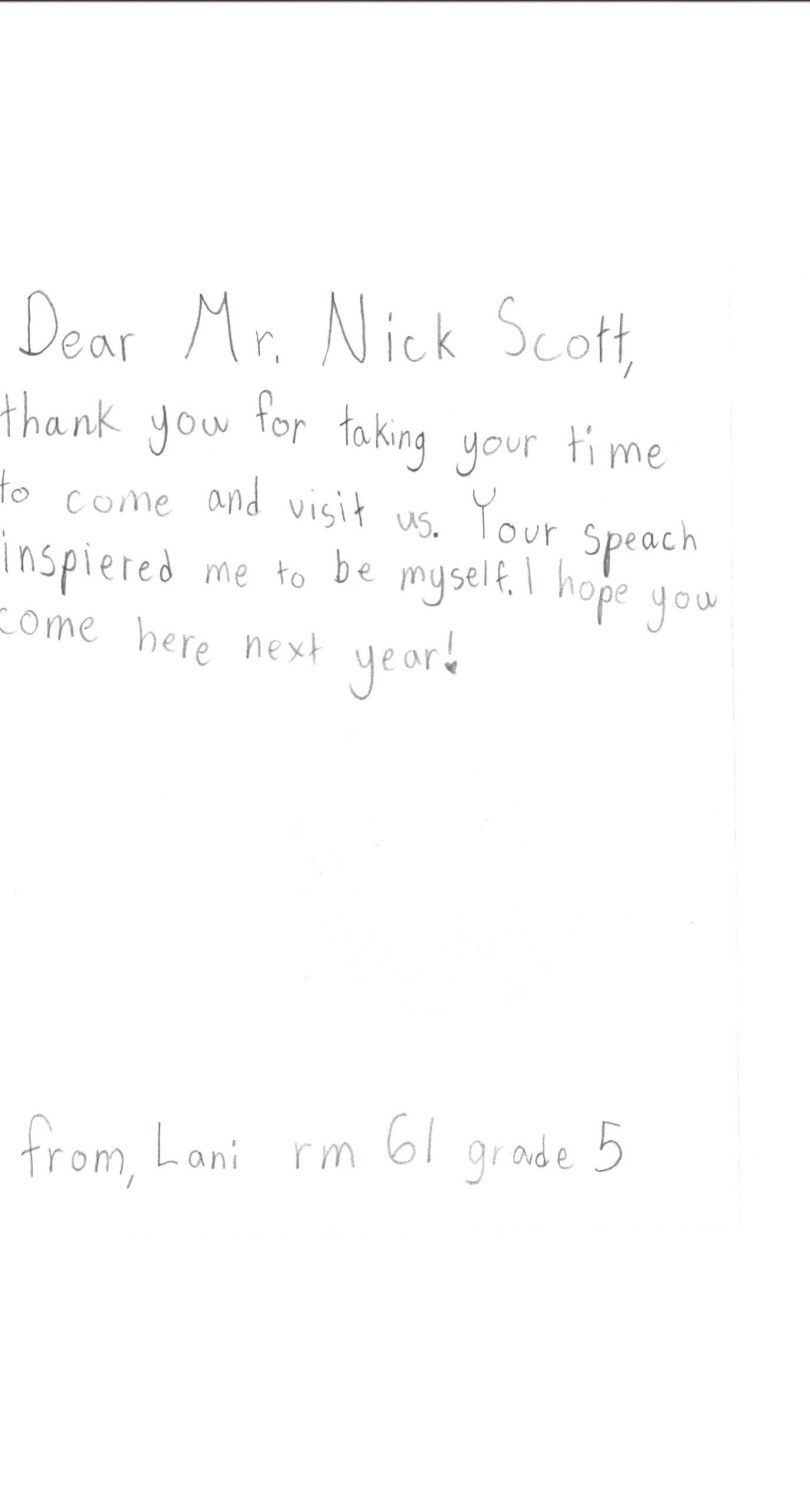 Dear Mr. Nick Scott,
thank you for taking your time
to come and visit us. Your speach
inspiered me to be myself. I hope you
come here next year!
from, Lani rm 61 grade 5